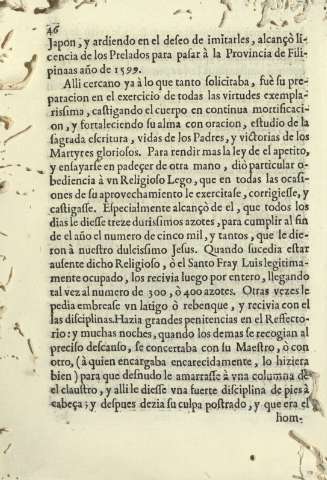 46
Japon, y ardiendo en el deseo de imitarles, alcançò li-
cencia de los Prelados para pasar à la Provincia de Fili-
pinaas año de 1599.
Alli cercano ya à lo que tanto solicitaba, fuè su pre-
paracion en el exercicio de todas las virtudes exempla-
rissima, castigando el cuerpo en continua mortificaci-
on, y fortaleciendo su alma con oracion, estudio de la
sagrada escritura, vidas de los Padres, y victorias de los
Martyres gloriosos. Para rendir mas la ley de el apetito,
y ensayarse en padeçer de otra mano, diò particular o-
bediencia à vn Religioso Lego, que en todas las ocasi-
ones de su aprovechamiento le exercitase, corrigiesse, y
castigasse. Especialmente alcançò de el, que todos los
dias le diesse treze durissimos azotes, para cumplir al fin
de el año el numero de cinco mil, y tantos, que le die-
ron à nuestro dulcissimo Jesus. Quando sucedia estar
ausente dicho Religioso, ò el Santo Fray Luis legitima-
mente ocupado, los recivia luego por entero, llegando
tal vez al numero de 300, ò 400 azotes. Otras vezes le
pedia embrase vn latigo ò rebenque, y recivia con el
las disciplinas. Hazia grandes penitencias en el Reffecto-
rio: y muchas noches, quando los demas se recogian al
preciso descanso, se concertaba con su Maestro, ò con
otro, (à quien encargaba encarecidamente, lo hiziera
bien) para que desnudo le amarrasse à vna columna de
el claustro, y alli le diesse vna fuerte disciplina de pies à
cabeça; y despues dezia su culpa postrado, y que era el
hom-